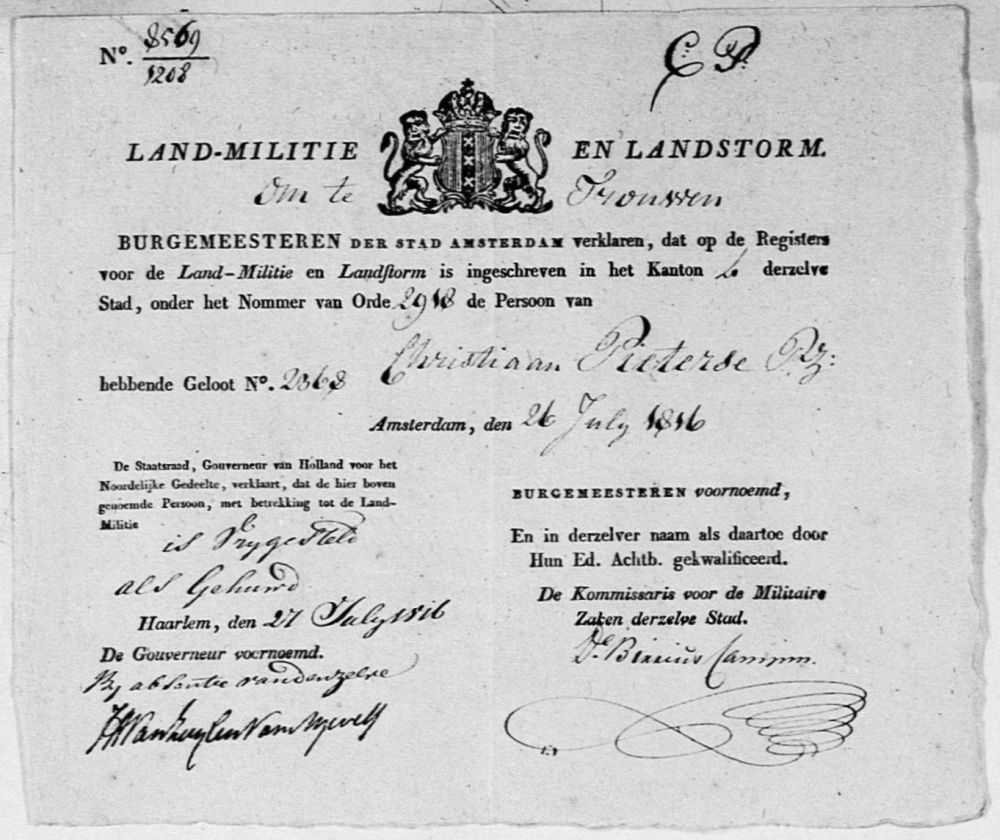 No. 8569
1208
C. P.
LAND-MILITIE EN LANDSTORM.
Om te Trouwen
BURGEMEESTEREN DER STAD AMSTERDAM verklaren, dat op de Registers
voor de Land-Militie en Landſtorm is ingeschreven in het Kanton 2. derzelve
Stad, onder het Nommer van Orde 2918 de Persoon van
Christiaan Pieterse Pz:
hebbende Geloot No. 2368
Amsterdam, den 26 July 1816
De Staatsraad, Gouverneur van Holland voor het
Noordelijke Gedeelte, verklaart, dat de hier boven
genoemde Persoon, met betrekking tot de Land-
Militie
is Vrygesteld
als Gehuwd
Haarlem, den 27 July 1816
De Gouverneur voornoemd.
By absentie van denzelve
BURGEMEESTEREN voornoemd,
En in derzelver naam als daartoe door
Hun Ed. Achtb. gekwalificeerd.
De Kommissaris voor de Militaire
Zaken derzelve Stad.